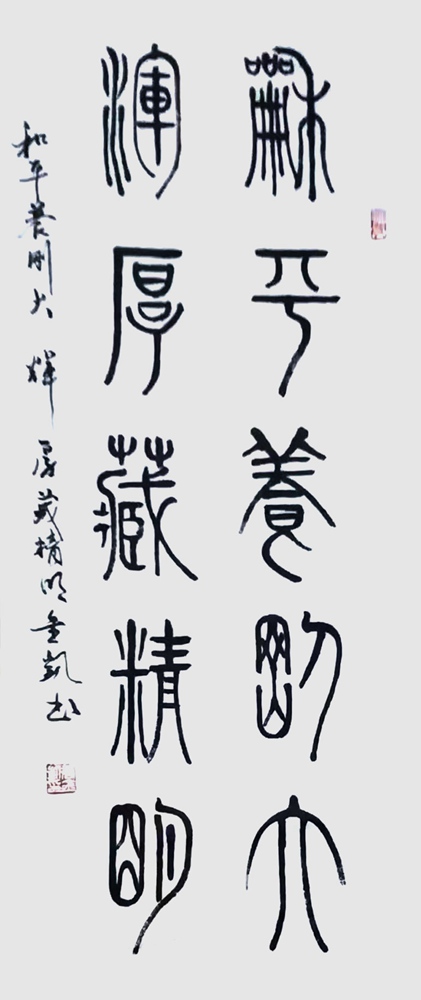 龢平養剛大
渾厚藏精明
和平養剛大 輝厚藏精明 金凱书